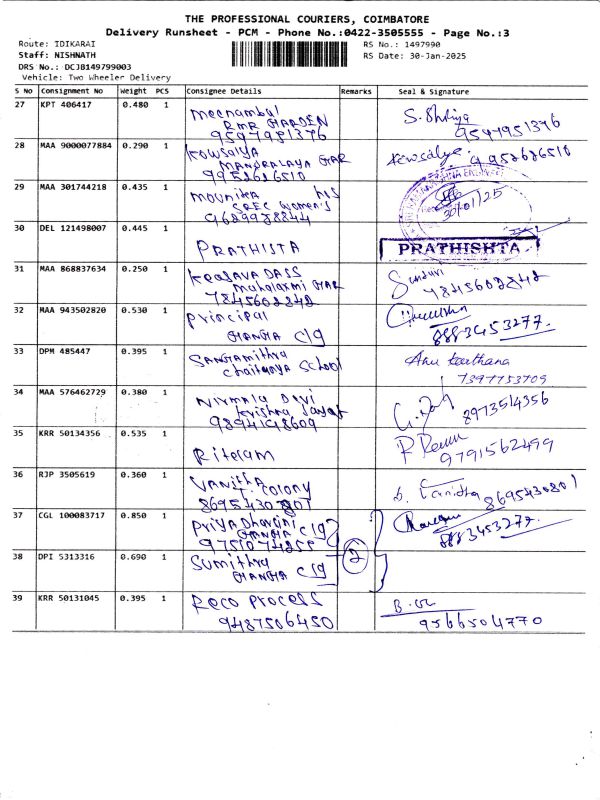 THE PROFESSIONAL COURIERS, COIMBATORE
Delivery Runsheet - PCM - Phone No.:0422-3505555 - Page No.:3
Route: IDIKARAI
RS No.: 1497990
Staff: NISHNATH
RS Date: 30-Jan-2025
DRS No.: DCJB149799003
Vehicle: Two Wheeler Delivery
S No Consignment No Weight PCS Consignee Details Remarks Seal & Signature
27 KPT 406417 0.480 1 Meenambal
RMR GARDEN
28 MAA 9000077884 0.290 1 Kowsalya
9952626510
29 MAA 301744218 0.435 1 Mounika
SREC Women's
30/01/25
30 DEL 121498007 0.445 1 PRATHISTA PRATHISHTA
31 MAA 868837634 0.250 1 Kesava Dass
Mahalaxmi
7845602842 7845602842
32 MAA 943502820 0.530 1 Principal
GANGA Clg 8883453277
33 DPM 485447 0.395 1 Sangamithra Anu keerthana
Chaitanya School 7397753709
34 MAA 576462729 0.380 1 Nirmala Devi
Krishna
8973514356
35 KRR 50134356 0.535 1 Riteram
9791562499
36 RJP 3505619 0.360 1 Vanitha
T. Colony
37 CGL 100083717 0.850 1 Priya Dharani
GANGA Clg
9751074255 8883453277
38 DPI 5313316 0.690 1 Sumithra 2
GANGA Clg
39 KRR 50131045 0.395 1 Reco Process
9487506450 9566504770